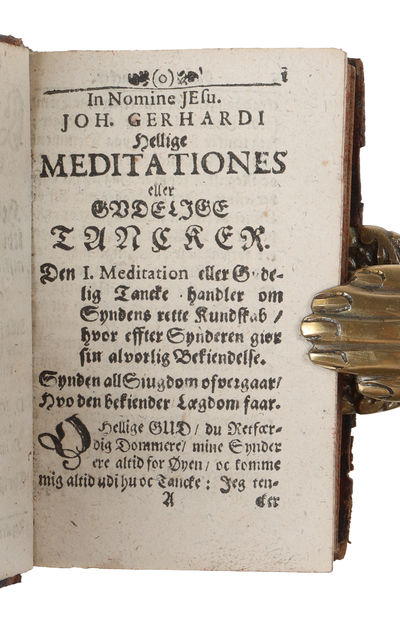 (o) i
In Nomine JEsu.
JOH. GERHARDI
Hellige
MEDITATIONES
eller
GVDELIGE
TANCKER.
Den I. Meditation eller Gude-
lig Tancke handler om
Syndens rette Kundskab /
hvor effter Synderen giør
sin alvorlig Bekiendelse.
Synden all Siugdom ofvergaar/
Hvo den bekiender Lægdom faar.
O Hellige GUD / du Retfær-
dig Dommere/ mine Synder
ere altid for Øyen/ oc komme
mig altid udi hu oc Tancke: Jeg ten-
A cker